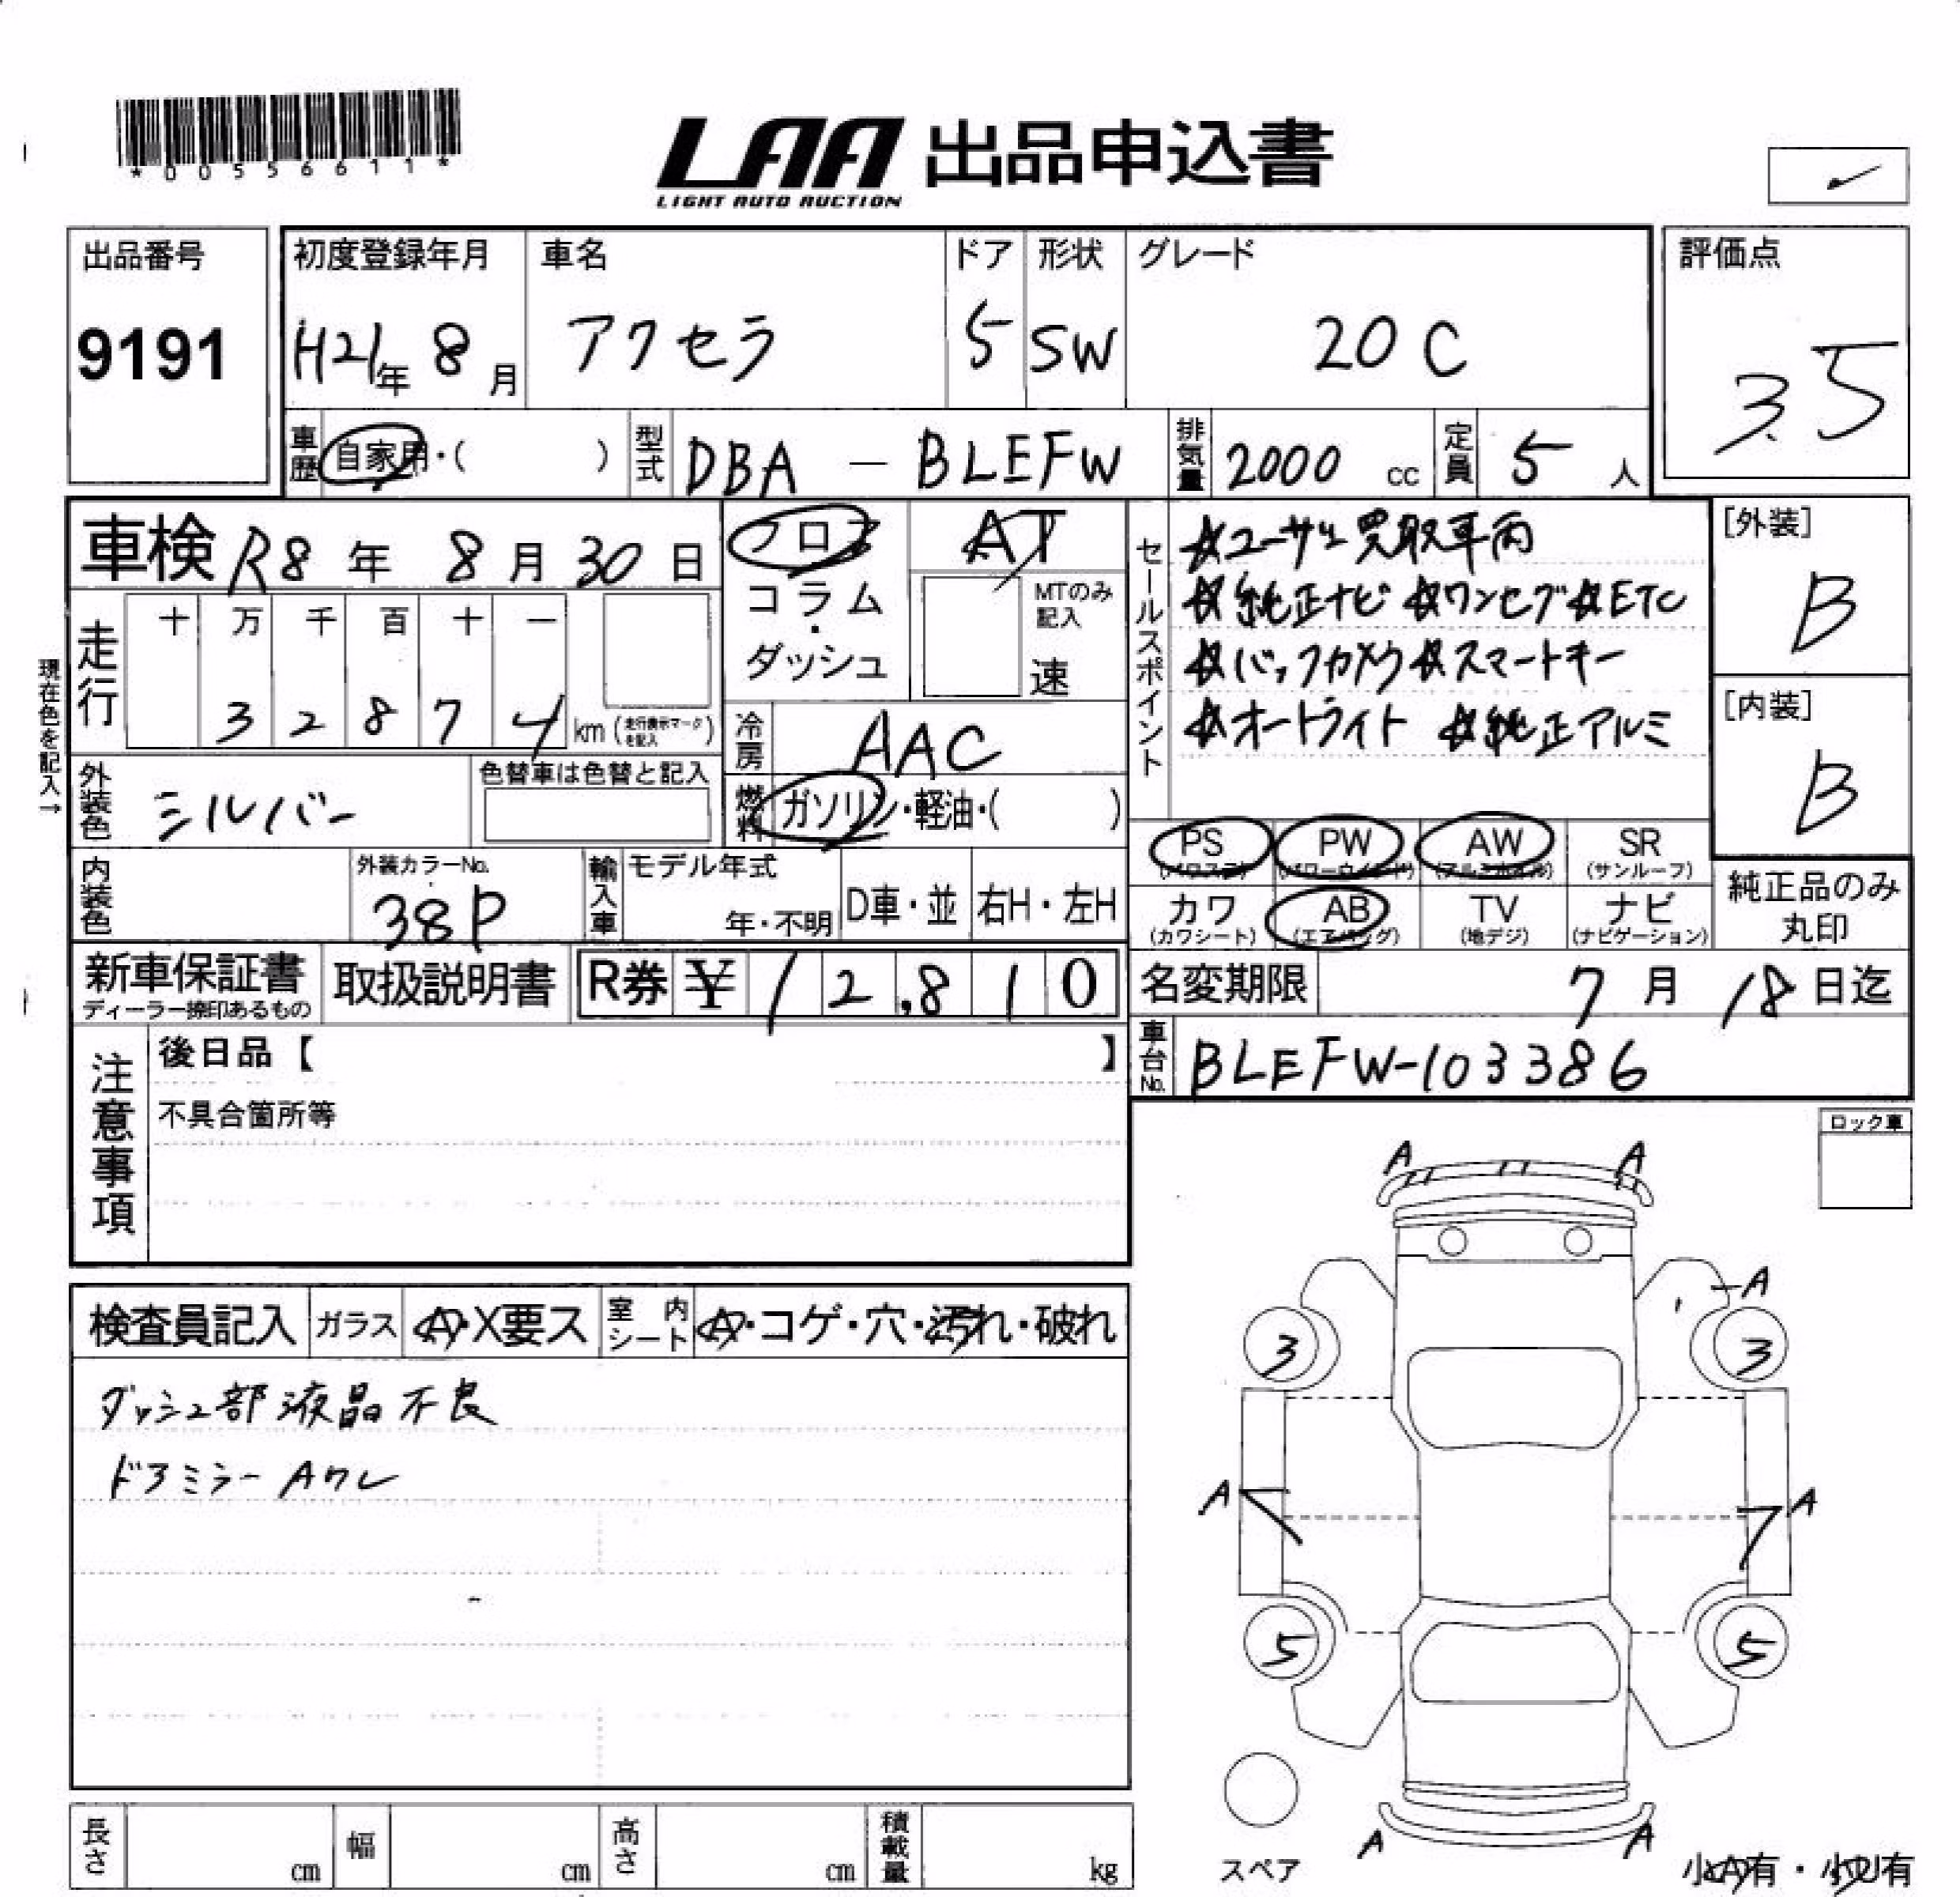 *00556611*
LAA 出品申込書
LIGHT AUTO AUCTION
出品番号
9191
初度登録年月
H21年 8月
車名
アクセラ
ドア
5
形状
SW
グレード
20C
評価点
3.5
車歴
自家用・( )
型式
DBA - BLEFW
排気量
2000 cc
定員
5 人
車検 R8年 8月30日
現在色を記入→
走行
十 万 千 百 十 一
3 2 8 7 4 km (走行表示マークを記入)
フロア
コラム・ダッシュ
AT
MTのみ記入
速
冷房
AAC
燃料
ガソリン・軽油・( )
外装色
シルバー
色替車は色替と記入
内装色
外装カラーNo.
38P
輸入車
モデル年式
年・不明
D車・並
右H・左H
セールスポイント
☆ユーザー買取車両
☆純正ナビ ☆ワンセグ ☆ETC
☆バックカメラ ☆スマートキー
☆オートライト ☆純正アルミ
[外装]
B
[内装]
B
PS
(パワステ)
PW
(パワーウインド)
AW
(アルミホイル)
SR
(サンルーフ)
カワ
(カワシート)
AB
(エアバッグ)
TV
(地デジ)
ナビ
(ナビゲーション)
純正品のみ
丸印
新車保証書
ディーラー捺印あるもの
取扱説明書
R券 ¥12,810
名変期限 7月18日迄
車台No.
BLEFW-103386
注意事項
後日品【 】
不具合箇所等
ロック車
検査員記入
ガラス
A・X要ス
室内シート
A・コゲ・穴・汚れ・破れ
ダッシュ部液晶不良
ドアミラーAワレ
A A
A
3 3
A A
5 5
A A
スペア
小A有・小U有
長さ
cm
幅
cm
高さ
cm
積載量
kg